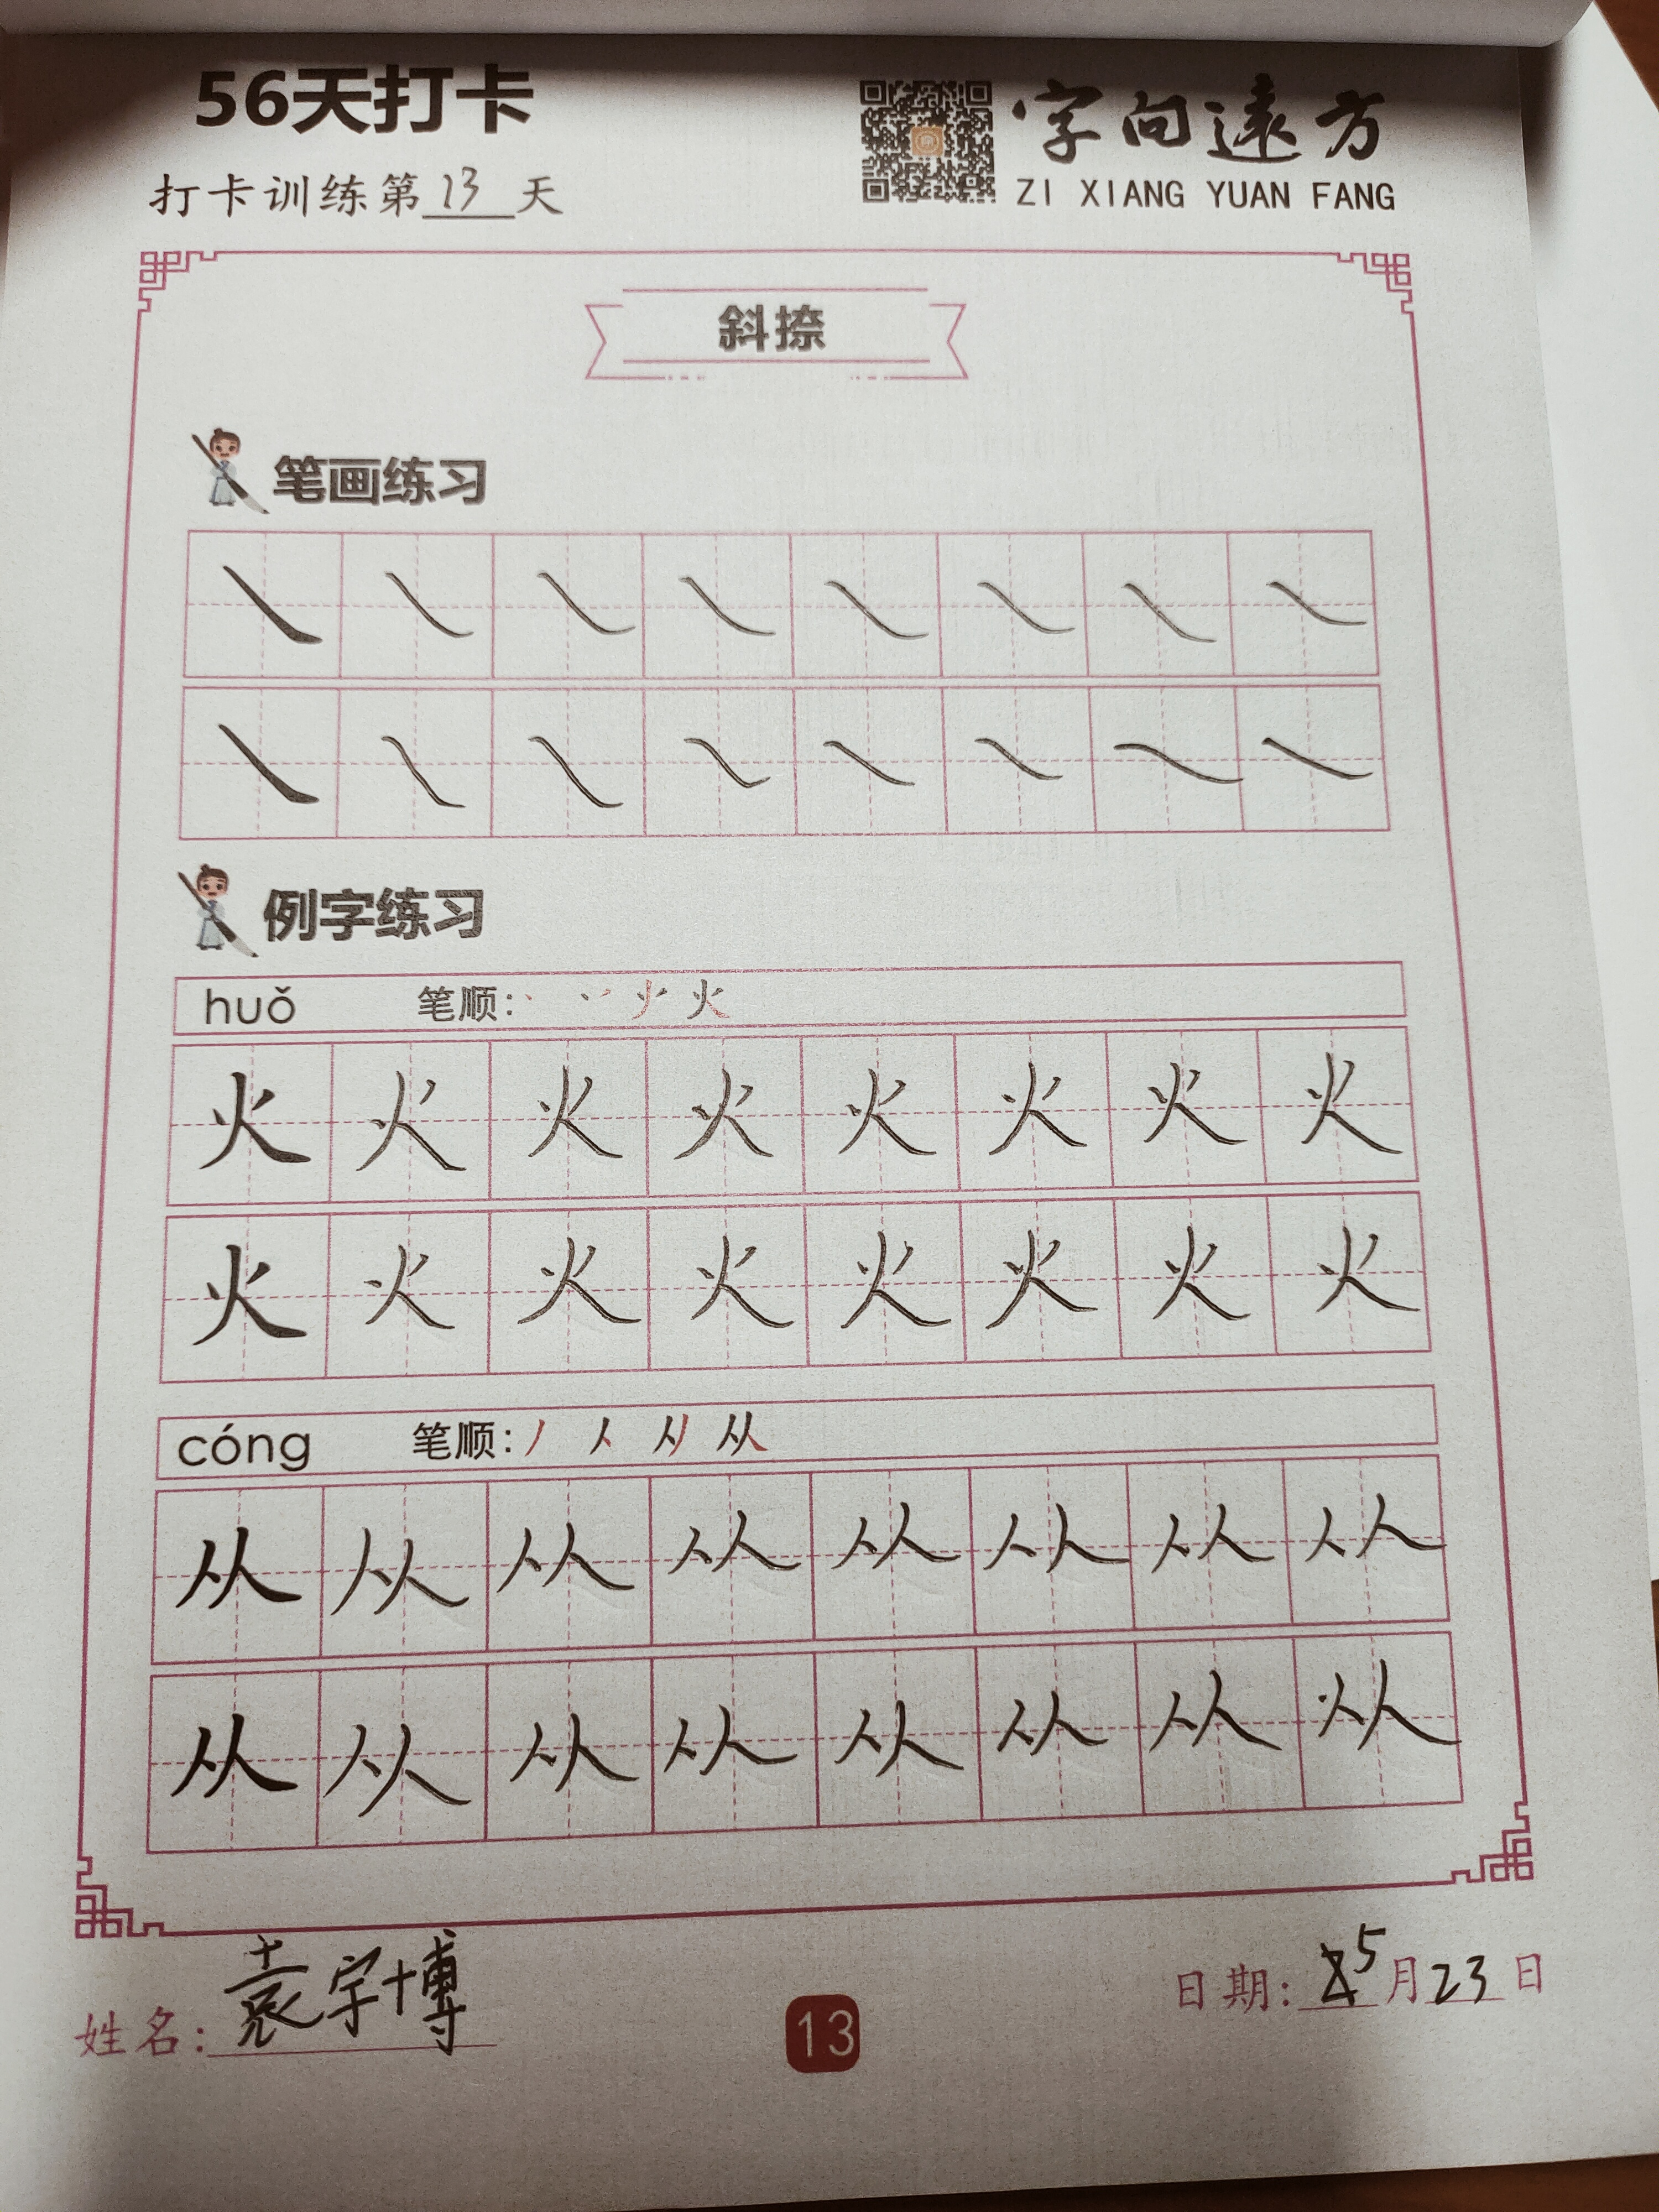 56天打卡
字向远方
打卡训练第13天
ZI XIANG YUAN FANG
斜捺
笔画练习
㇏ ㇏ ㇏ ㇏ ㇏ ㇏ ㇏ ㇏
㇏ ㇏ ㇏ ㇏ ㇏ ㇏ ㇏ ㇏
例字练习
huǒ 笔顺: 火
火 火 火 火 火 火 火 火
火 火 火 火 火 火 火 火
cóng 笔顺: 丿 人 从
从 从 从 从 从 从 从 从
从 从 从 从 从 从 从 从
姓名: 袁宇博
日期: 5月23日
13